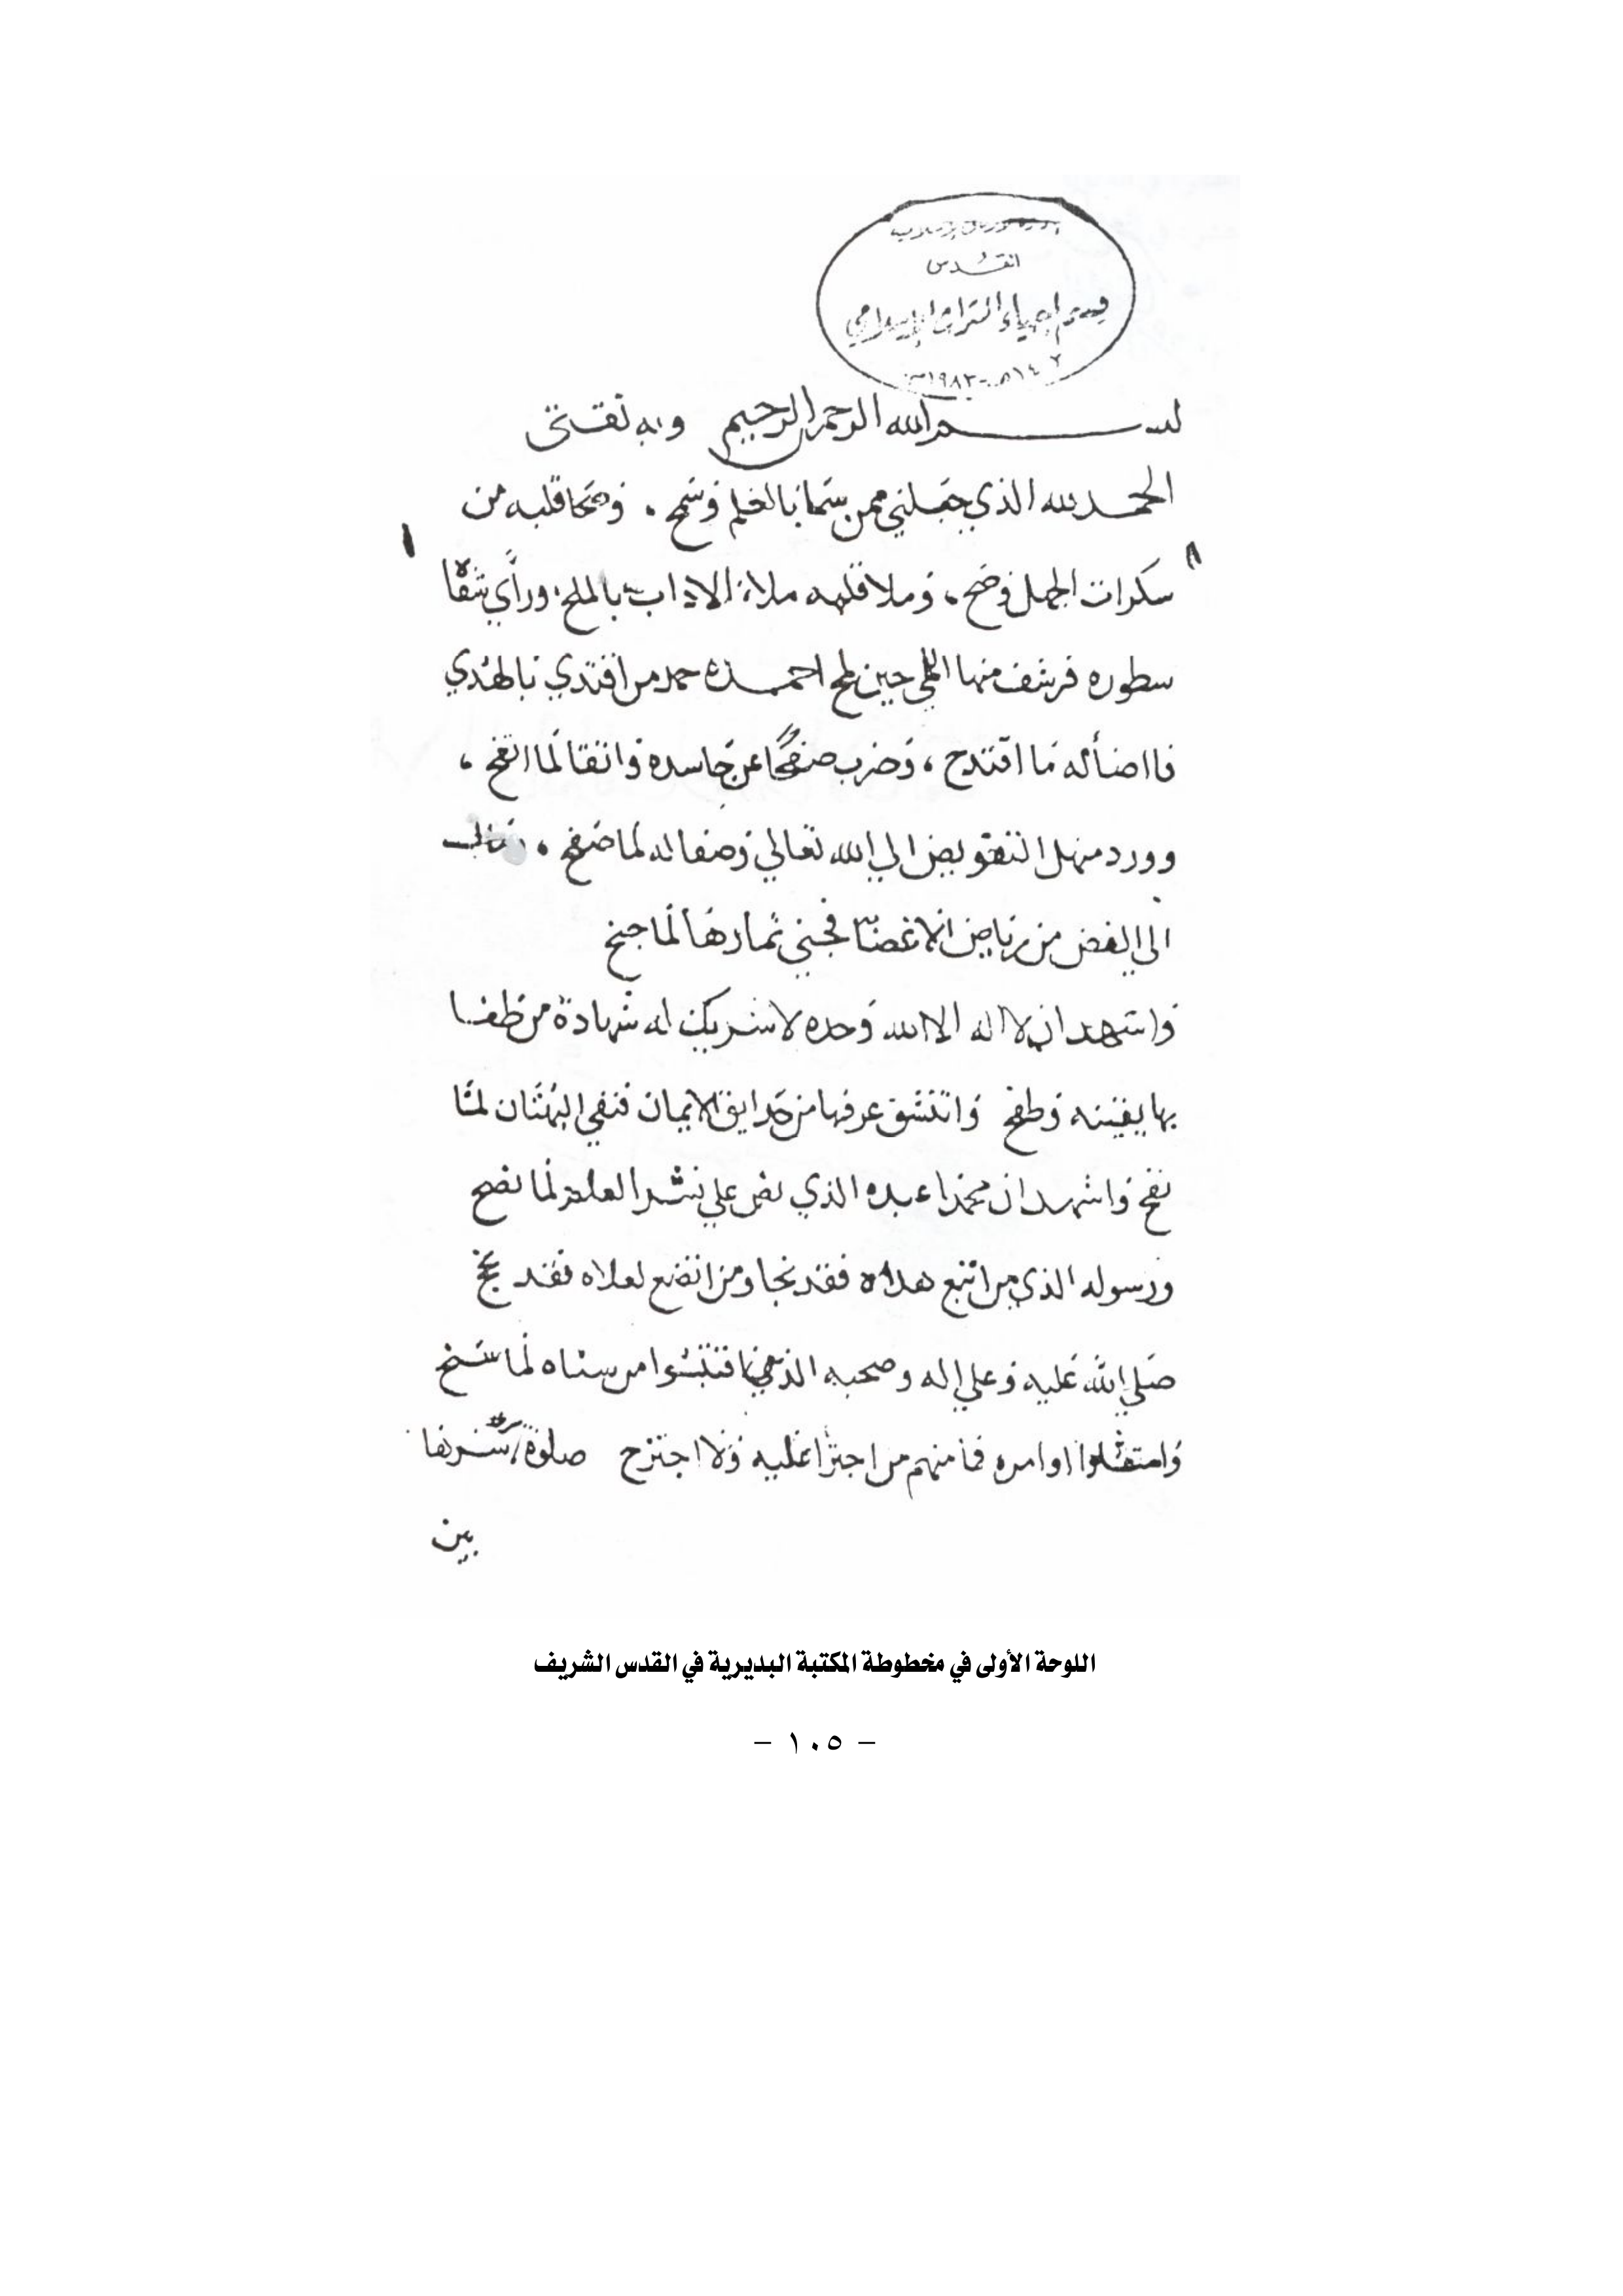 القدس
قسم إحياء التراث الإسلامي
بسم الله الرحمن الرحيم وبه ثقتي
الحمد لله الذي جعلني ممن سما بالعلم وسمح . وصحا قلبه من
سكرات الجهل وصح ، وملا قلبه ملاذ الاداب بالملح وراي
سطوره فرشف منها اللمي حين لمح احمده حمد من اقتدي بالهدي
فااضأله ما اقتدح ، وضرب صفحًا عن حاسده واتقا لما اتقح ،
وورد منهل التفويض الي الله تعالي وصفا له لما صفح ،
الي الغض من رياض الاغصان فجني ثمارها لما جنح
واشهد ان لا اله الا الله وحده لا شريك له شهادة من طفا
بها يقينه وطفح وانتشق عرفها من حدايق الايمان فنفي البهتان لما
نفح واشهد ان محمدا عبده الذي نص علي نشر العلم لما نصح
ورسوله الذي من اتبع هداه فقد نجا ومن اتضع لعلاه فقد نجح
صلي الله عليه وعلي اله وصحبه الذين اقتبسوا من سناه لما سنح
وامتثلوا اوامره فما منهم من اجترا عليه ولا اجترح صلوة
بين
اللوحة الأولى في مخطوطة المكتبة البديرية في القدس الشريف
- ١٠٥ -